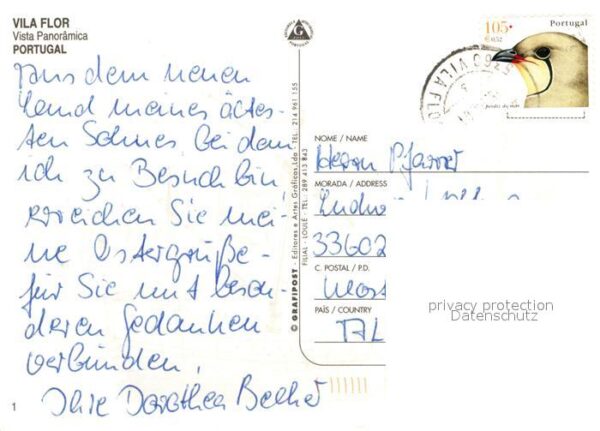 VILA FLOR
Vista Panorâmica
PORTUGAL
aus dem neuen
Land meines ältes-
ten Sohnes bei dem
ich zu Besuch bin
erreichen Sie mei-
ne Ostergrüße -
für Sie mit beson-
deren Gedanken
verbunden,
Ihre Dorothea
1
© GRAFIPOST - Editores e Artes Gráficas, Lda • TEL. 214 961 155
FILIAL - LOULÉ - TEL. 289 413 843
105
€ 0,52
Portugal
VILA FLOR
NOME / NAME
Herrn Pfarrer
MORADA / ADDRESS
33602
C. POSTAL / P.D.
PAÍS / COUNTRY
privacy protection
Datenschutz